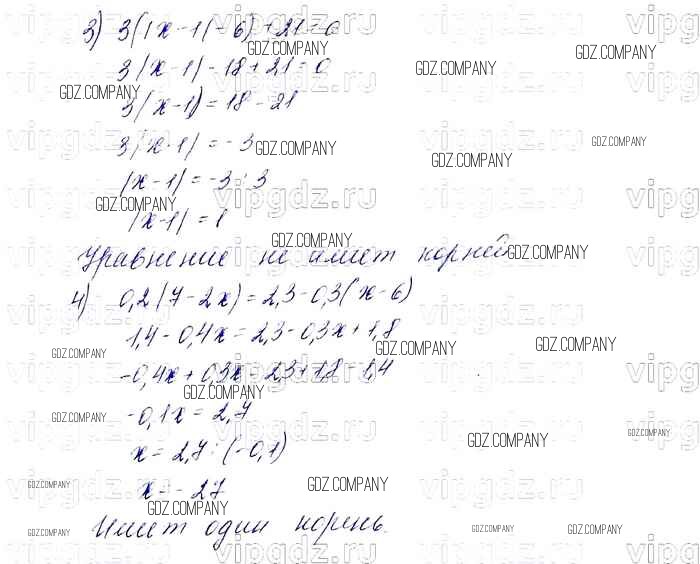 3) 3(|x-1|-6)+21=0
3|x-1|-18+21=0
3|x-1|=18-21
3|x-1|=-3
|x-1|=-3:3
|x-1|=1
Уравнение не имеет корней
4) 0,2(7-2x)=2,3-0,3(x-6)
1,4-0,4x=2,3-0,3x+1,8
-0,4x+0,3x=2,3+1,8-1,4
-0,1x=2,7
x=2,7:(-0,1)
x=-27
Имеет один корень.
GDZ.COMPANY
vipgdz.ru